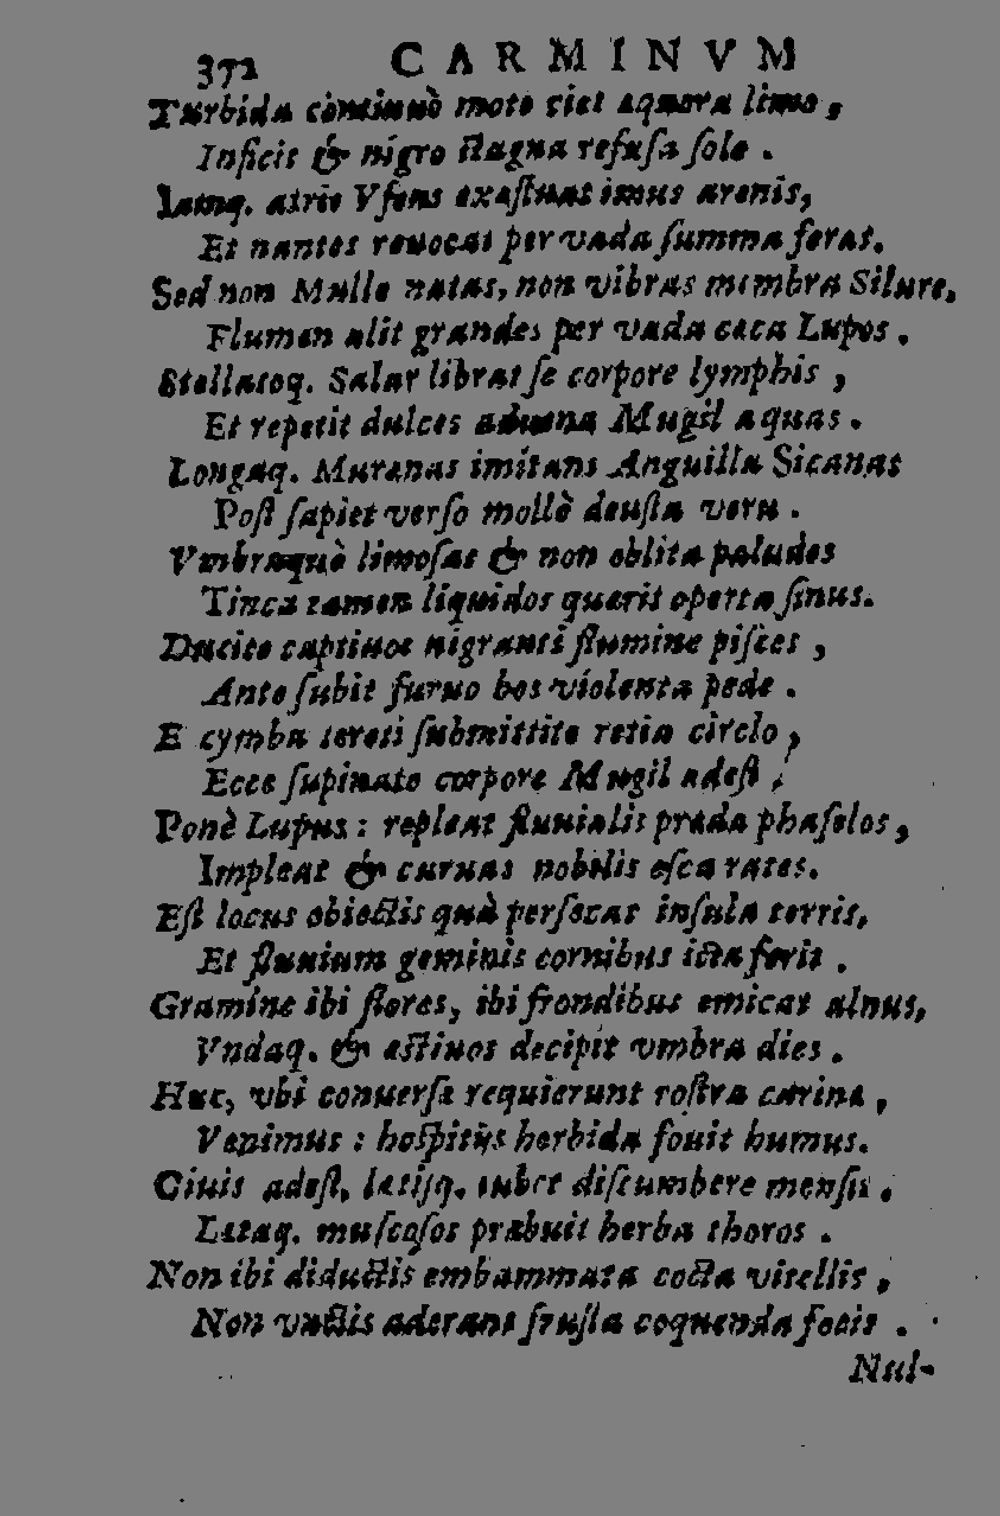 372 CARMINVM
Turbida continuò moto ciet æquora limo,
Inficit & nigro stagna refusa solo.
Iamq. atris Vfens exæstuat imus arenis,
Et nantes reuocat per vada summa feras.
Sed non Mulle natas, non vibras membra Silure,
Flumen alit grandes per vada cæca Lupos.
Stellatoq. Salar librat se corpore lymphis,
Et repetit dulces aduena Mugil aquas.
Longaq. Murænas imitans Anguilla Sicanas
Post sapiet verso mollè deusta veru.
Vmbraquè limosas & non oblita paludes
Tinca tamen liquidos querit operta sinus.
Ducite captiuos nigranti flumine pisces,
Ante subit furuo bos violenta pede.
E cymba tereti submittite retia circlo,
Ecce supinato corpore Mugil adest;
Ponè Lupus: repleat fluuialis præda phaselos,
Impleat & curuas nobilis esca rates.
Est locus obiectis quà persecat insula terris,
Et fluuium geminis cornibus icta ferit.
Gramine ibi flores, ibi frondibus emicat alnus,
Vndaq. & æstiuos decipit vmbra dies.
Huc, vbi conuersæ requierunt rostra carinæ,
Venimus: hospitijs herbida fouit humus.
Ciuis adest, lætisq. iubet discumbere mensis.
Lætaq. muscosos præbuit herba thoros.
Non ibi diductis embammata cocta vitellis,
Non vnctis aderant frusta coquenda focis.
Nul-